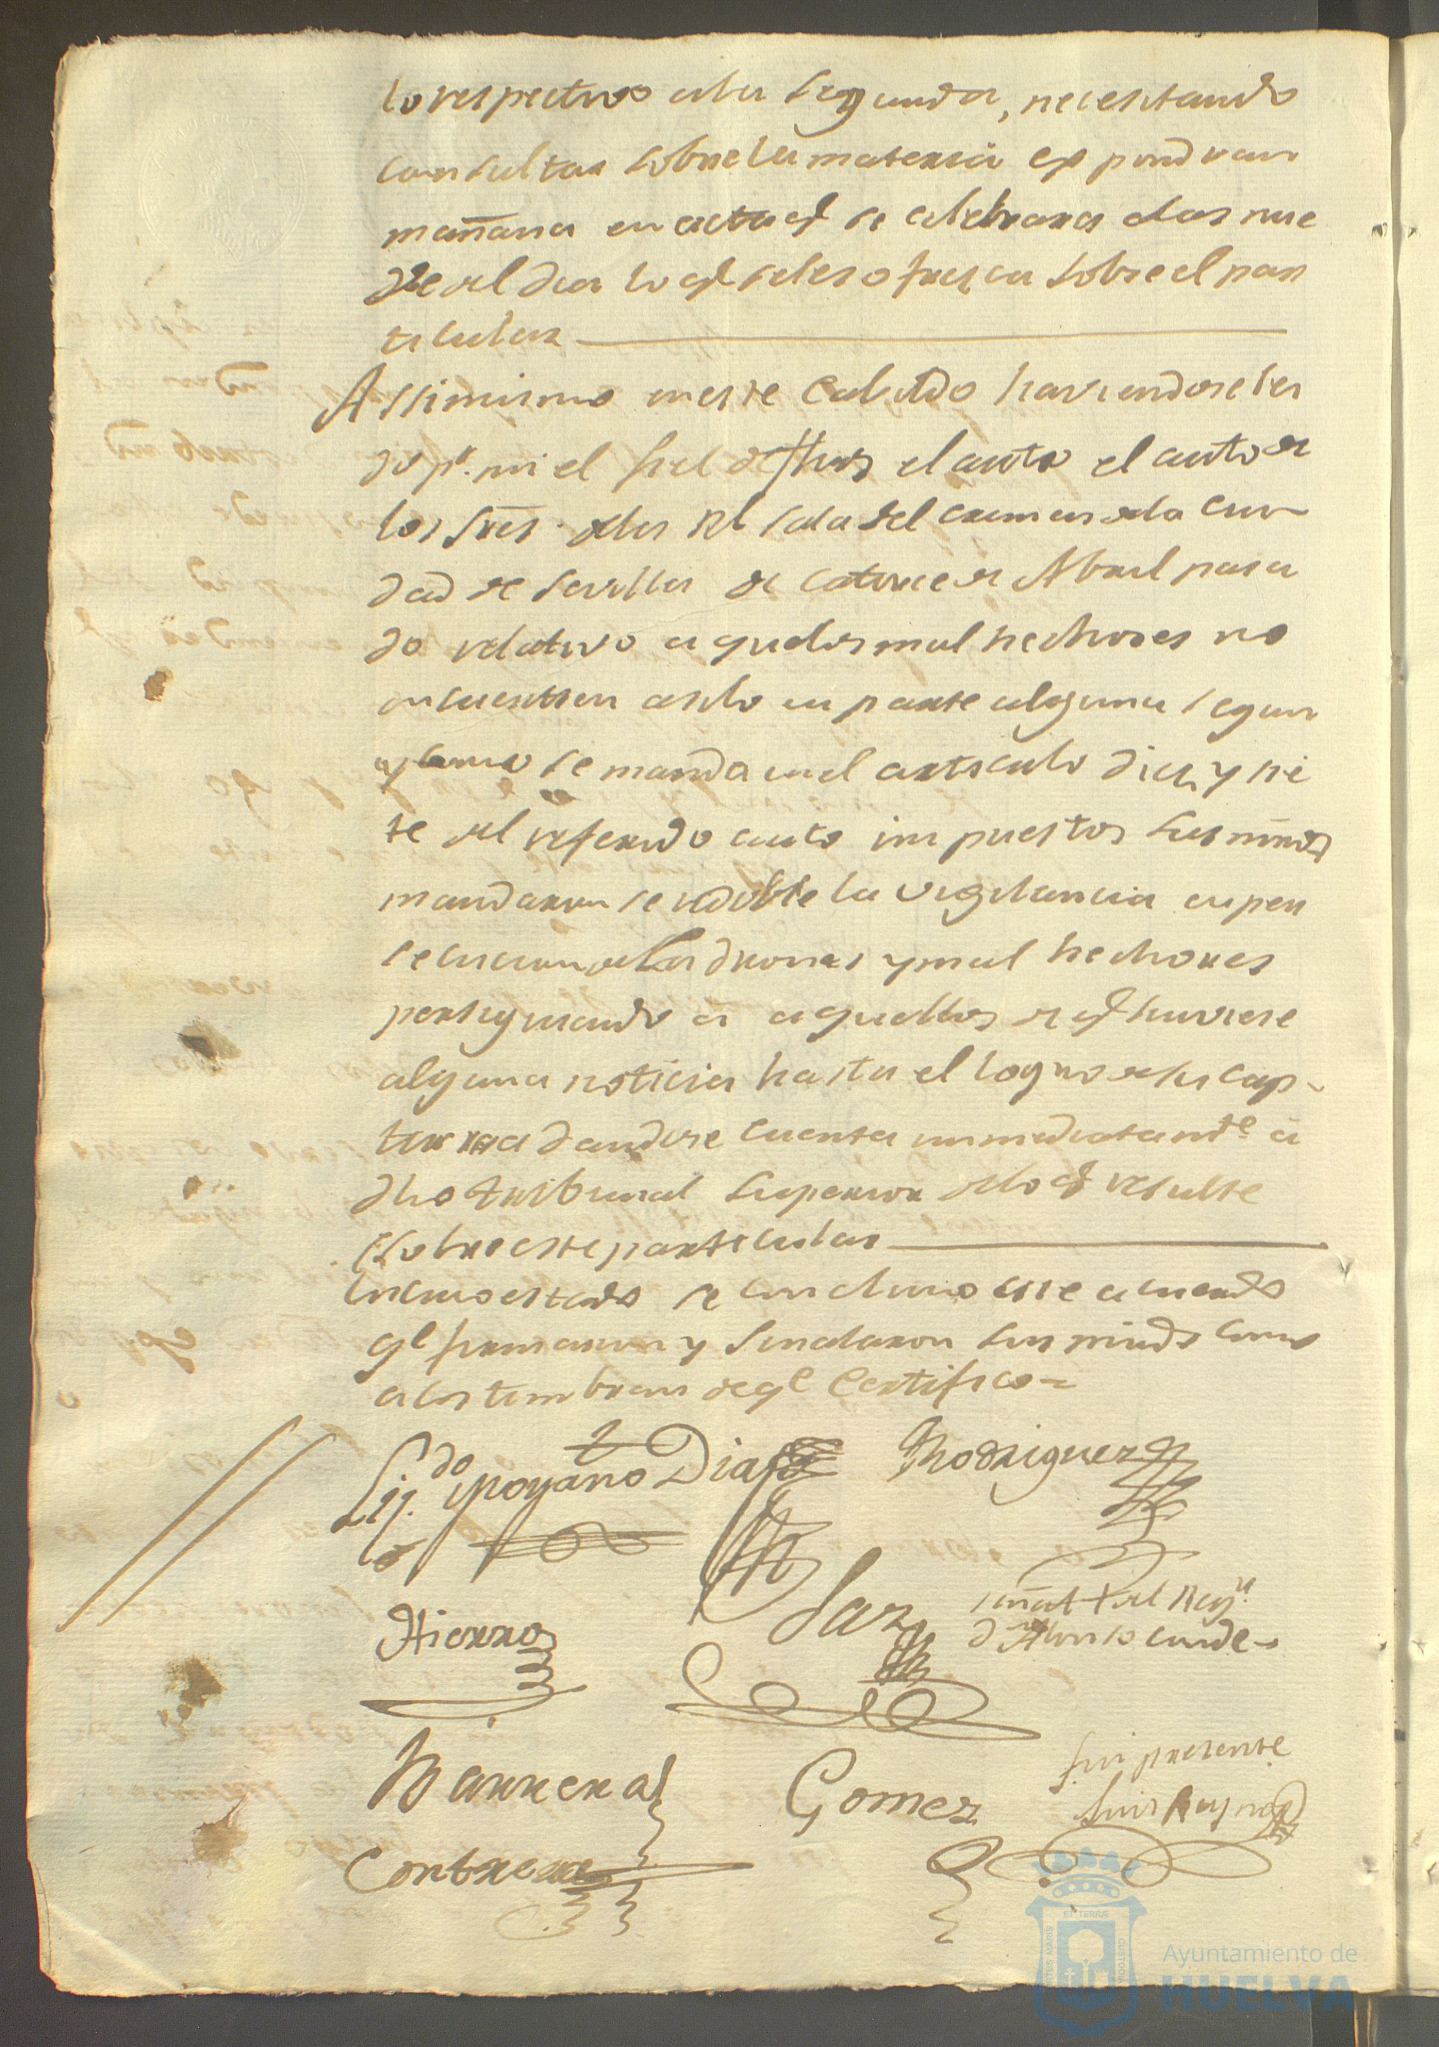 lo respectivo a la segunda, necesitando
consultar sobre la materia expondran
mañana en acta q.e se celebrara a las nue
ve del dia lo q.e se les ofresca sobre el par
ticular
Assimismo en este Cabildo haviendose lei
do p.r mi el fiel de fhos el auto el auto de
los Sres. de la Rl Sala del Crimen de la Ciu
dad de Sevilla de catorce de Abril pasa
do relativo a que los mal hechores no
encuentren asilo en parte alguna segun
y como se manda en el articulo diez y sie
te del referido auto impuestos sus mrds
mandaron se redoble la vigilancia en per
secucion de Ladrones y mal hechores
persiguiendo a aquellos de q.e huviere
alguna noticia hasta el logro de su cap-
tura dandose cuenta inmediatam.te a
dho tribunal Superior de lo q.e resulte
sobre este particular
En cuio estado se concluio este acuerdo
q.e firmaron y señalaron sus mrds como
acostumbran de q.e Certifico=
Lij.do Moyano Diaz Rodriguez
Hierro Saz señal + del Rex.r
d.n Alonso Conde
Barrera Gomez Fui presente
Luis Reyno
Contreras
Ayuntamiento de
HUELVA